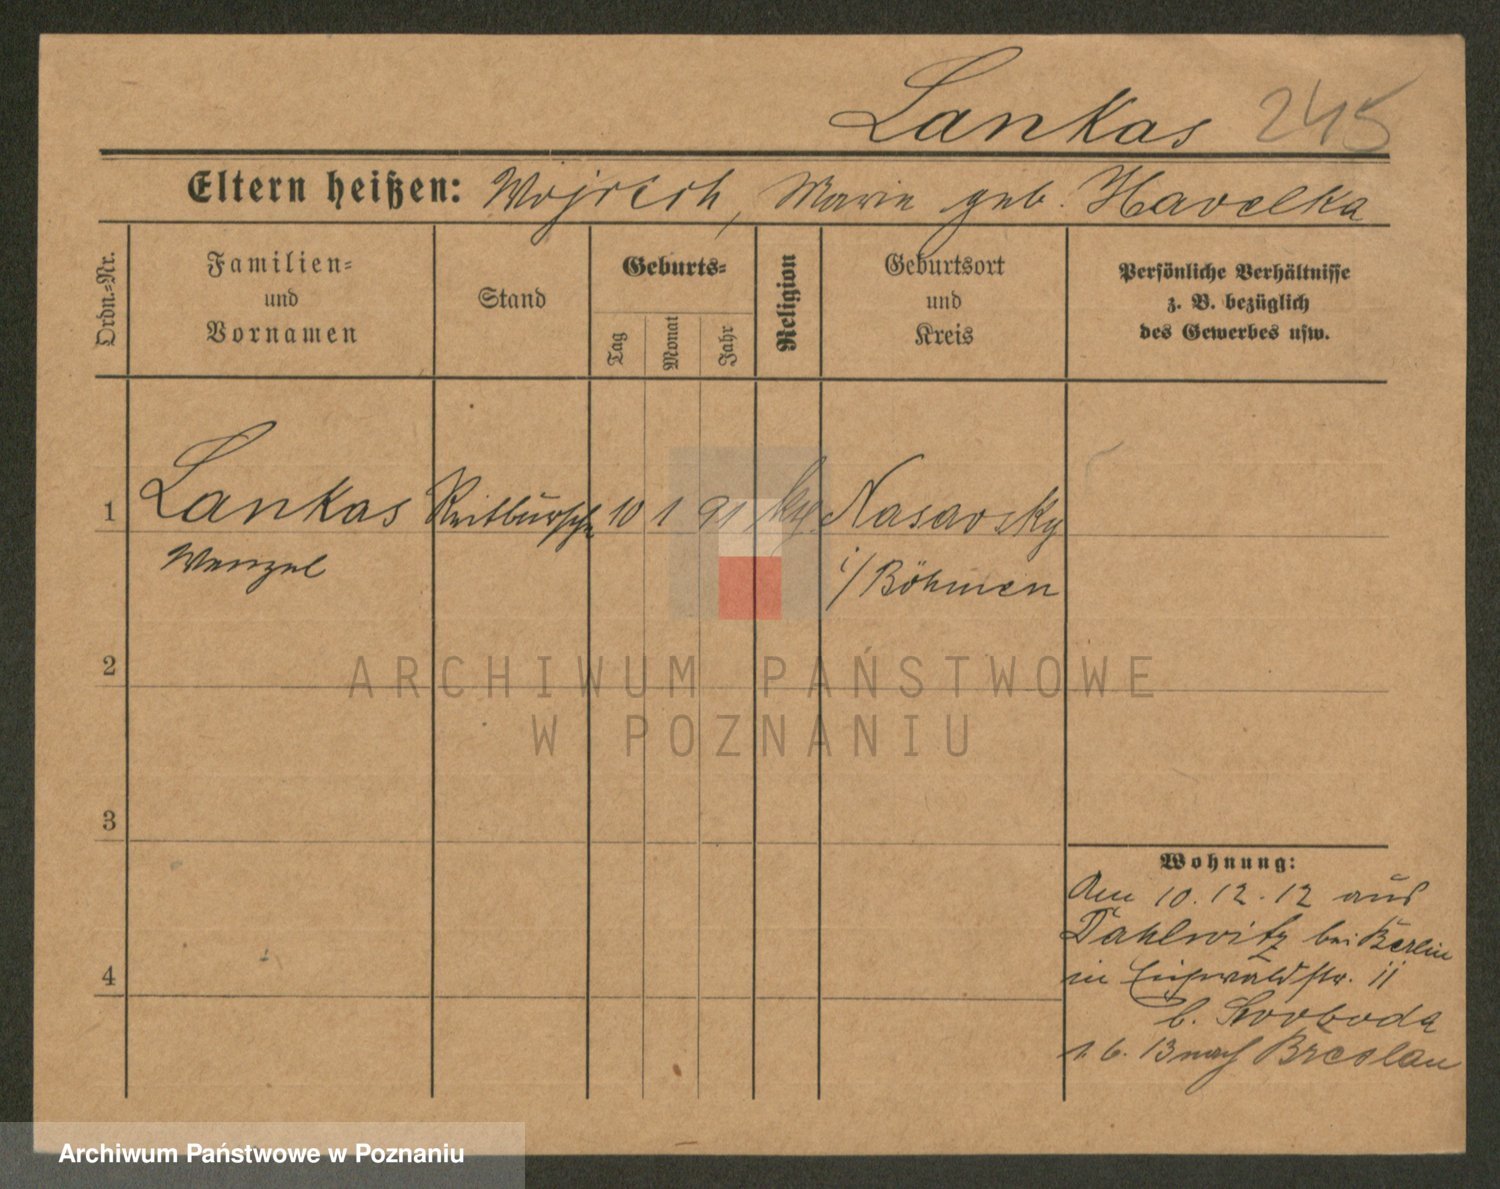 Lankas 245
Eltern heißen: Wojtech, Marie geb. Havelka
Ordn.-Nr.
Familien-
und
Vornamen
Stand
Geburts-
Tag
Monat
Jahr
Religion
Geburtsort
und
Kreis
Persönliche Verhältnisse
z. B. bezüglich
des Gewerbes usw.
1 Lankas Reitbursche 10 1 91 Nasavrky
Wenzel i/Böhmen
2
ARCHIWUM PAŃSTWOWE
W POZNANIU
3
Wohnung:
Am 10.12.12 aus
Dahlwitz bei Berlin
in Eichwaldstr. 11
b. Svoboda
1.6.13 nach Breslau
4
Archiwum Państwowe w Poznaniu